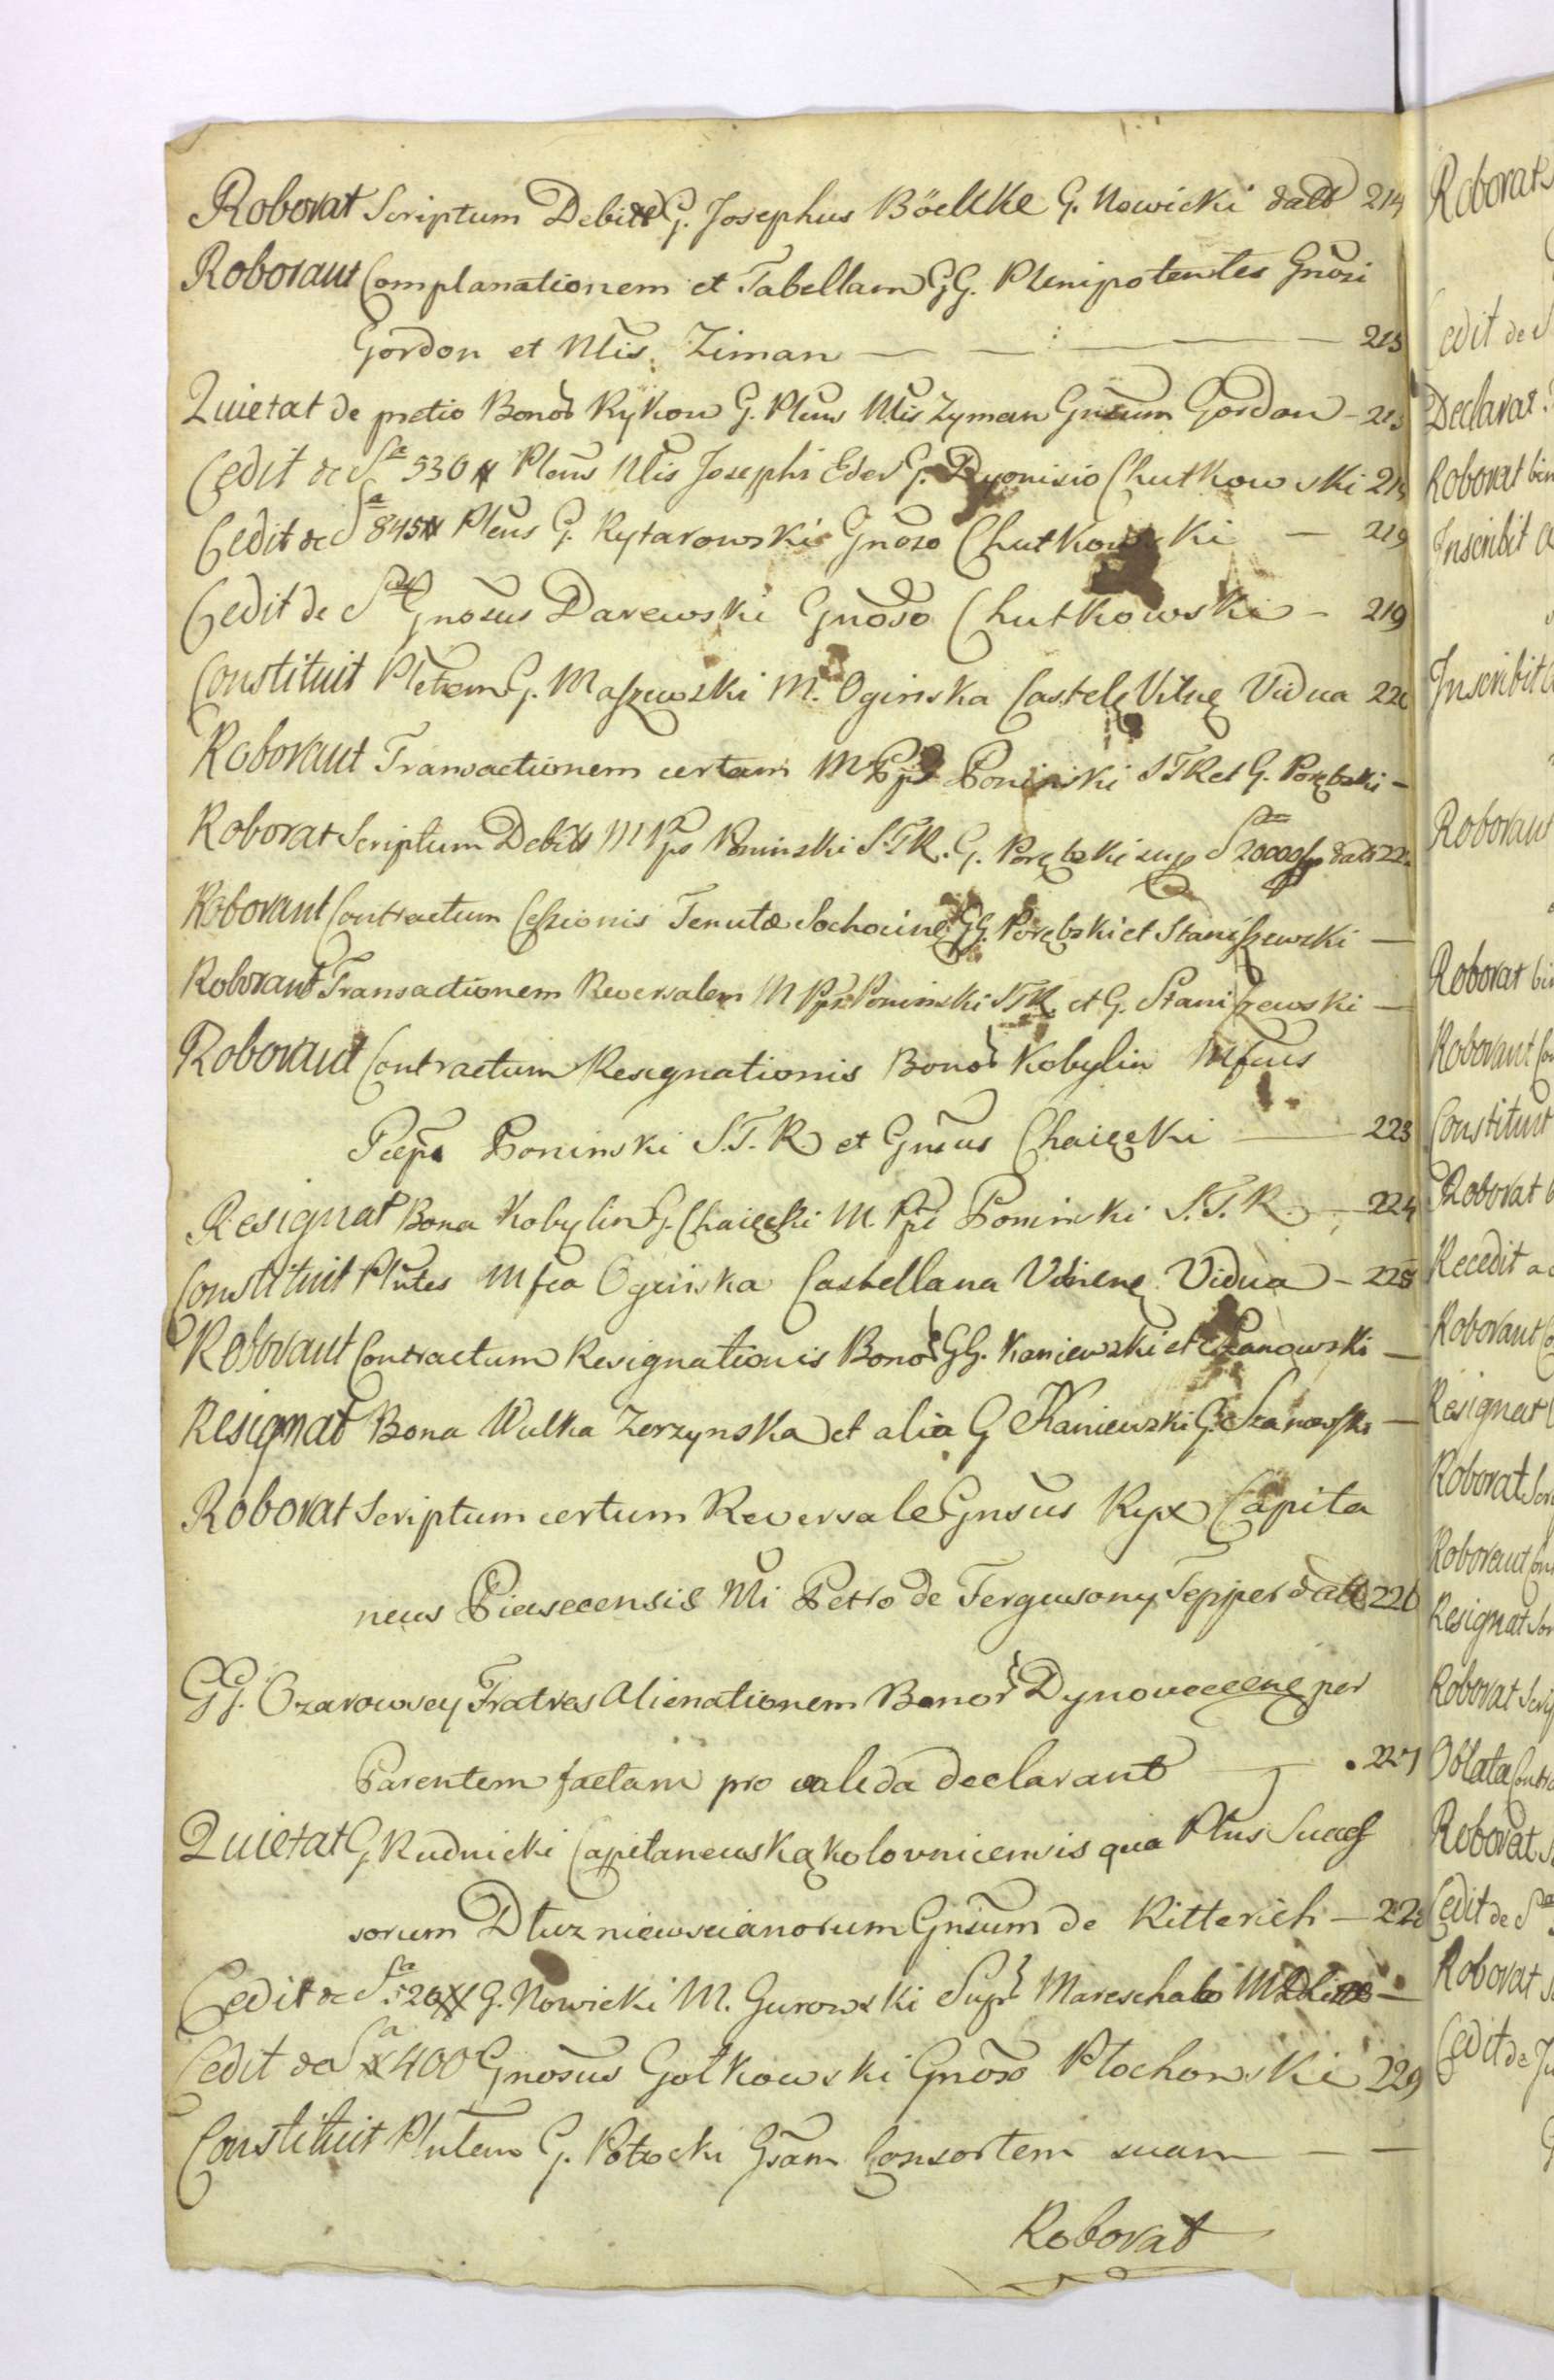 Roborat Scriptum Debiti G. Josephus Böeltke G. Nowicki datt 214
Roborant Complanationem et Tabellam GG. Plenipotentes Gnosi
Gordon et Nlis Ziman — — : — — 215
Quietat de pretio Bonor Rykow G. Plens Nlis Zyman Gnsum Gordon - 215
Cedit de Sa 530 # Plens Nlis Josephi Eder G. Dyonisio Chutkowski 21
Cedit de Sa 845 # Plens G. Rytarowski Gnoso Chutkowski — 219
Cedit de S Gnosus Darewski Gnoso Chutkowski - 219
Constituit Pletem G. Maszewski M. Oginska Castelę Vilnę Vidua 22
Roborant Transactionem certam M Pps Poninski STR et G. Porębski -
Roborat Scriptum Debiti M Pps Poninski S.T.R. G. Porębski sup S 20000 datt 22
Roborant Contractum Cessionis Tenutæ Sochocinę GG. Porębski et Staniszewski —
Roborant Transactionem Reversalem M Pps Poninski STR. et G. Staniszewski —
Roborant Contractum Resignationis Bonor Kobylin Mfcus
Pceps Poninski S.T.R. et Gnsus Chaięcki — 223
Resignat Bona Kobylin G. Chaięcki M. Ppi Poninski S.T.R. — 224
Constituit Plntes Mfca Oginska Castellana Vilnenę Vidua - 225
Roborant Contractum Resignationis Bonor GG. Kaniewski et Szanowski —
Resignat Bona Wulka Zerzynska et alia G Kaniewski G. Szanowski —
Roborat Scriptum certum Reversale Gnsus Ryx Capita
neus Piasecensis Nli Petro de Fergusony Tepper datt 226
GG. Ozarowscy Fratres Alienationem Bonor Dynovecenę per
Parentem factam pro valida declarant — . 227
Quietat G Rudnicki Capitaneus Kąkolovnicensis qua Pltus Succes
sorum Dłuzniewscianorum Gnsum de Ritterich — 22
Cedit de Sa 520 # G. Nowicki M. Gurowski Supr Mareschalo MDLitt —
Cedit de Sa # 400 Gnosus Gołkowski Gnoso Płochowski 229
Constituit Plntem G. Potocki Gsam Consortem suam — —
Roborat
Roborat
Cedit de S
Declarat
Roborat bin
Inscribit
Inscribit
Roborant
Roborat bin
Roborant Con
Constituit
Roborat
Recedit a
Roborant Co
Resignat
Roborat Scri
Roborant Con
Resignat
Roborat Scrip
Oblata Contra
Roborat
Cedit de Sa
Roborat
Cedit de